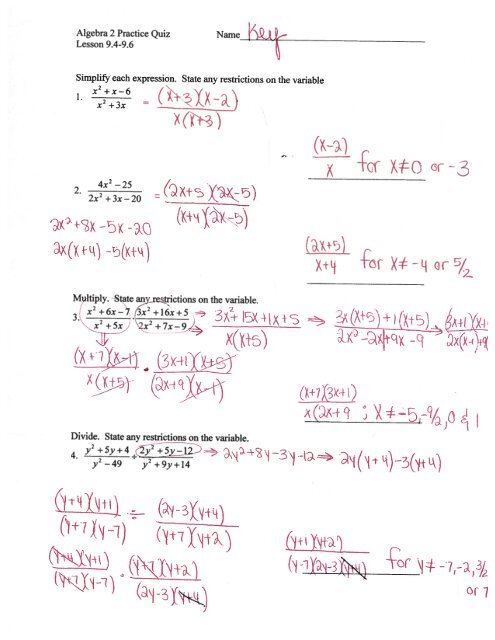 Algebra 2 Practice Quiz Name Key
Lesson 9.4-9.6
Simplify each expression. State any restrictions on the variable
1. x² + x – 6 / x² + 3x = (x+3)(x-2) / x(x+3)
(x-2) / x for x≠0 or -3
2. 4x² – 25 / 2x² + 3x – 20 = (2x+5)(2x-5) / (x+4)(2x-5)
2x²+8x-5x-20
2x(x+4) -5(x+4)
(2x+5) / x+4 for x≠ -4 or 5/2
Multiply. State any restrictions on the variable.
3. x² + 6x – 7 / x² + 5x · 3x² + 16x + 5 / 2x² + 7x – 9 → 3x²+15x+1x+5 / x(x+5) ⇒ 3x(x+5)+1(x+5) / 2x²-2x+9x-9 →
(x+7)(x-1) / x(x+5) · (3x+1)(x+5) / (2x+9)(x-1)
(x+7)(3x+1) / x(2x+9 ; x≠-5,-9/2,0 & 1
Divide. State any restrictions on the variable.
4. y² + 5y + 4 / y² – 49 ÷ 2y² + 5y – 12 / y² + 9y + 14 → 2y²+8y-3y-12 → 2y(y+4)-3(y+4)
(y+4)(y+1) / (y+7)(y-7) ÷ (2y-3)(y+4) / (y+7)(y+2)
(y+4)(y+1) / (y+7)(y-7) · (y+7)(y+2) / (2y-3)(y+4)
(y+1)(y+2) / (y-7)(2y-3)(y+4) for y≠ -7,-2,3/2
or 7